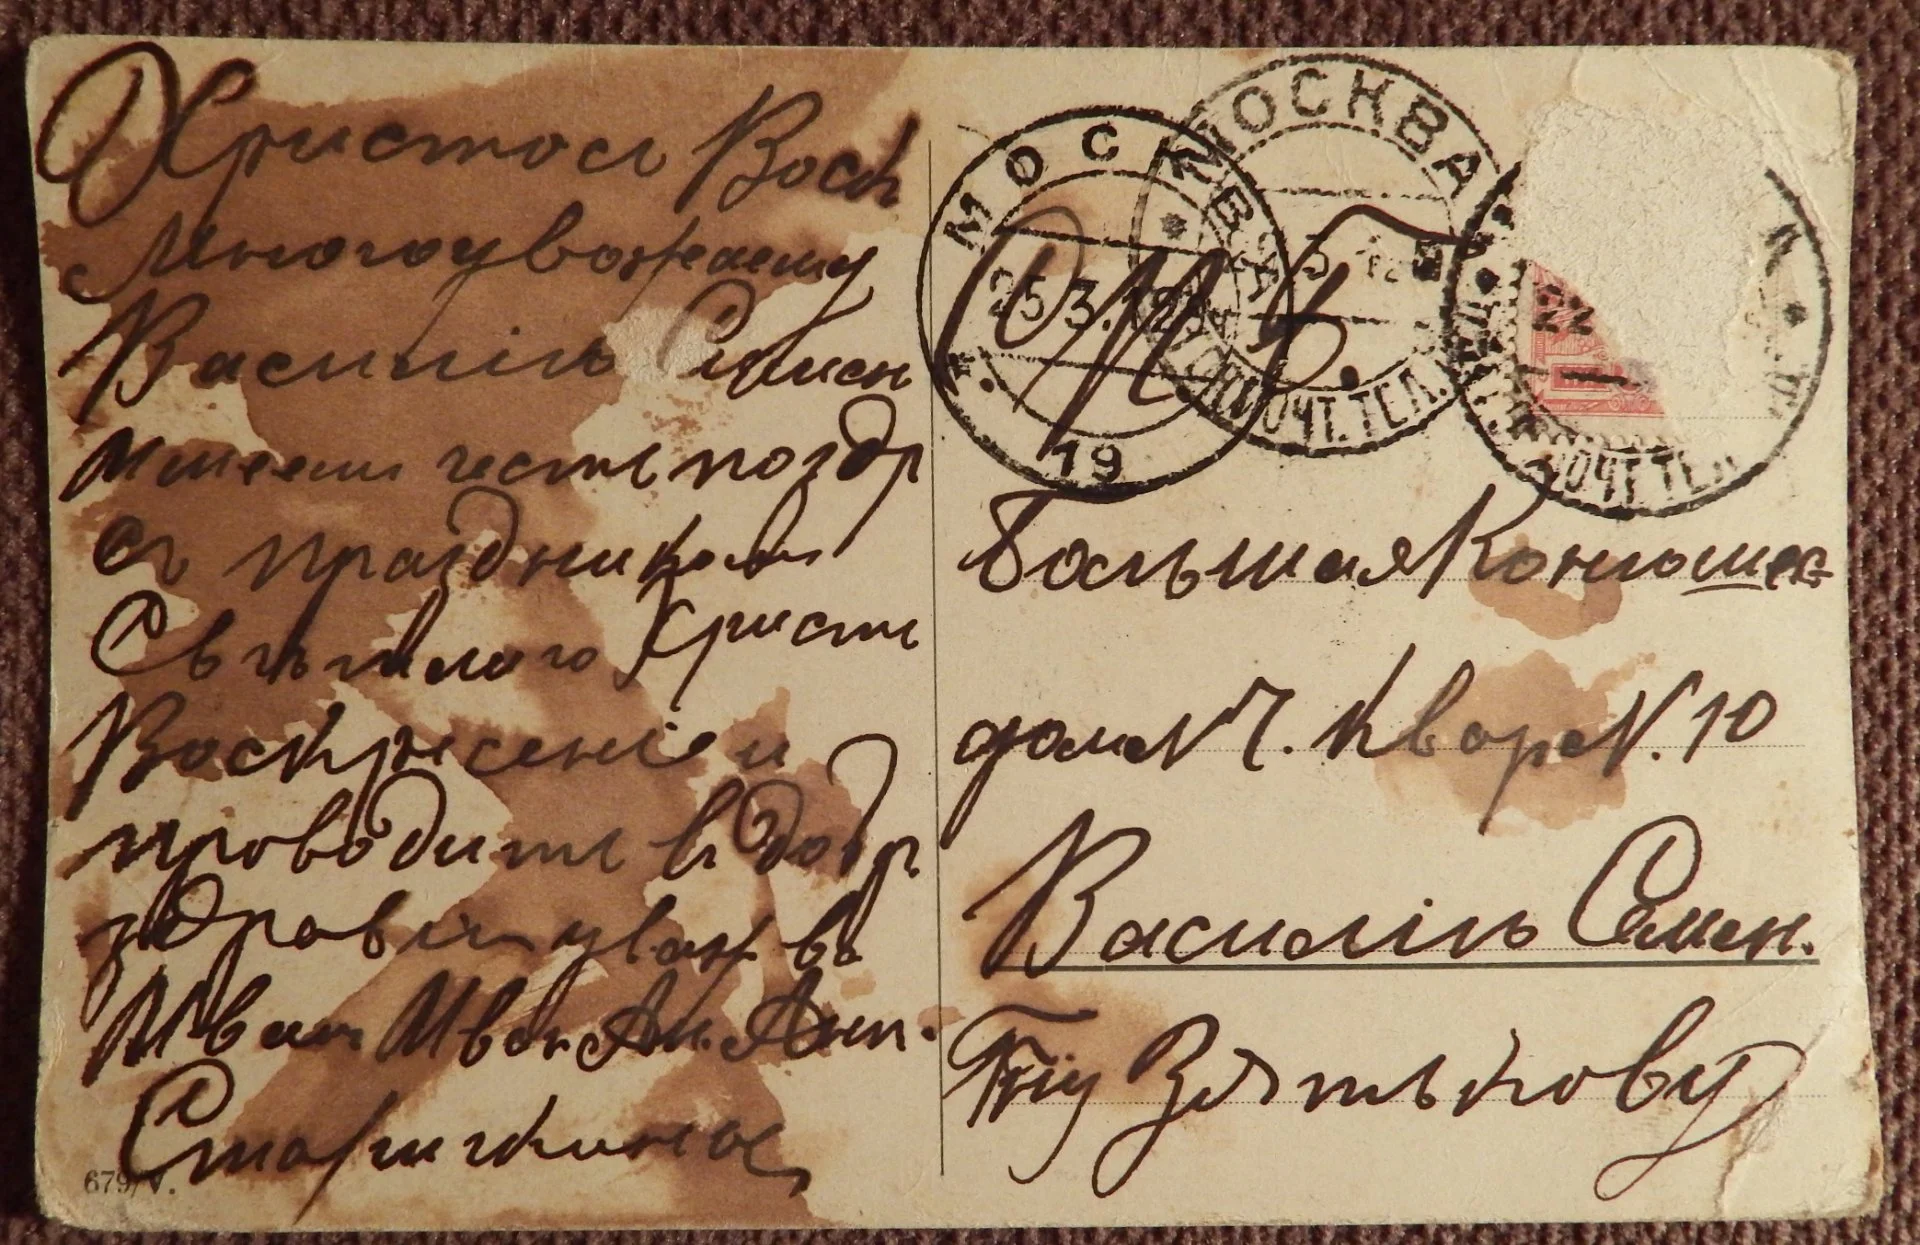 Христосъ Воск
Многоуважаему
Василiю Семен
Имеем честь поздр
съ праздником
Свѣтлаго Христ
Воскресенiе и
проводить в добр
здравiи уваж ва
Иван Иван Ан. Анп.
Старичкины
679/V.
МОСКВА
25.3.12
19
МОСКВА
ПОЧТ. ТЕЛ.
ПОЧТ. ТЕЛ.
Большая Конюшес
домъ №7. Квар №.10
Василiю Семен.
Гну Зятькову